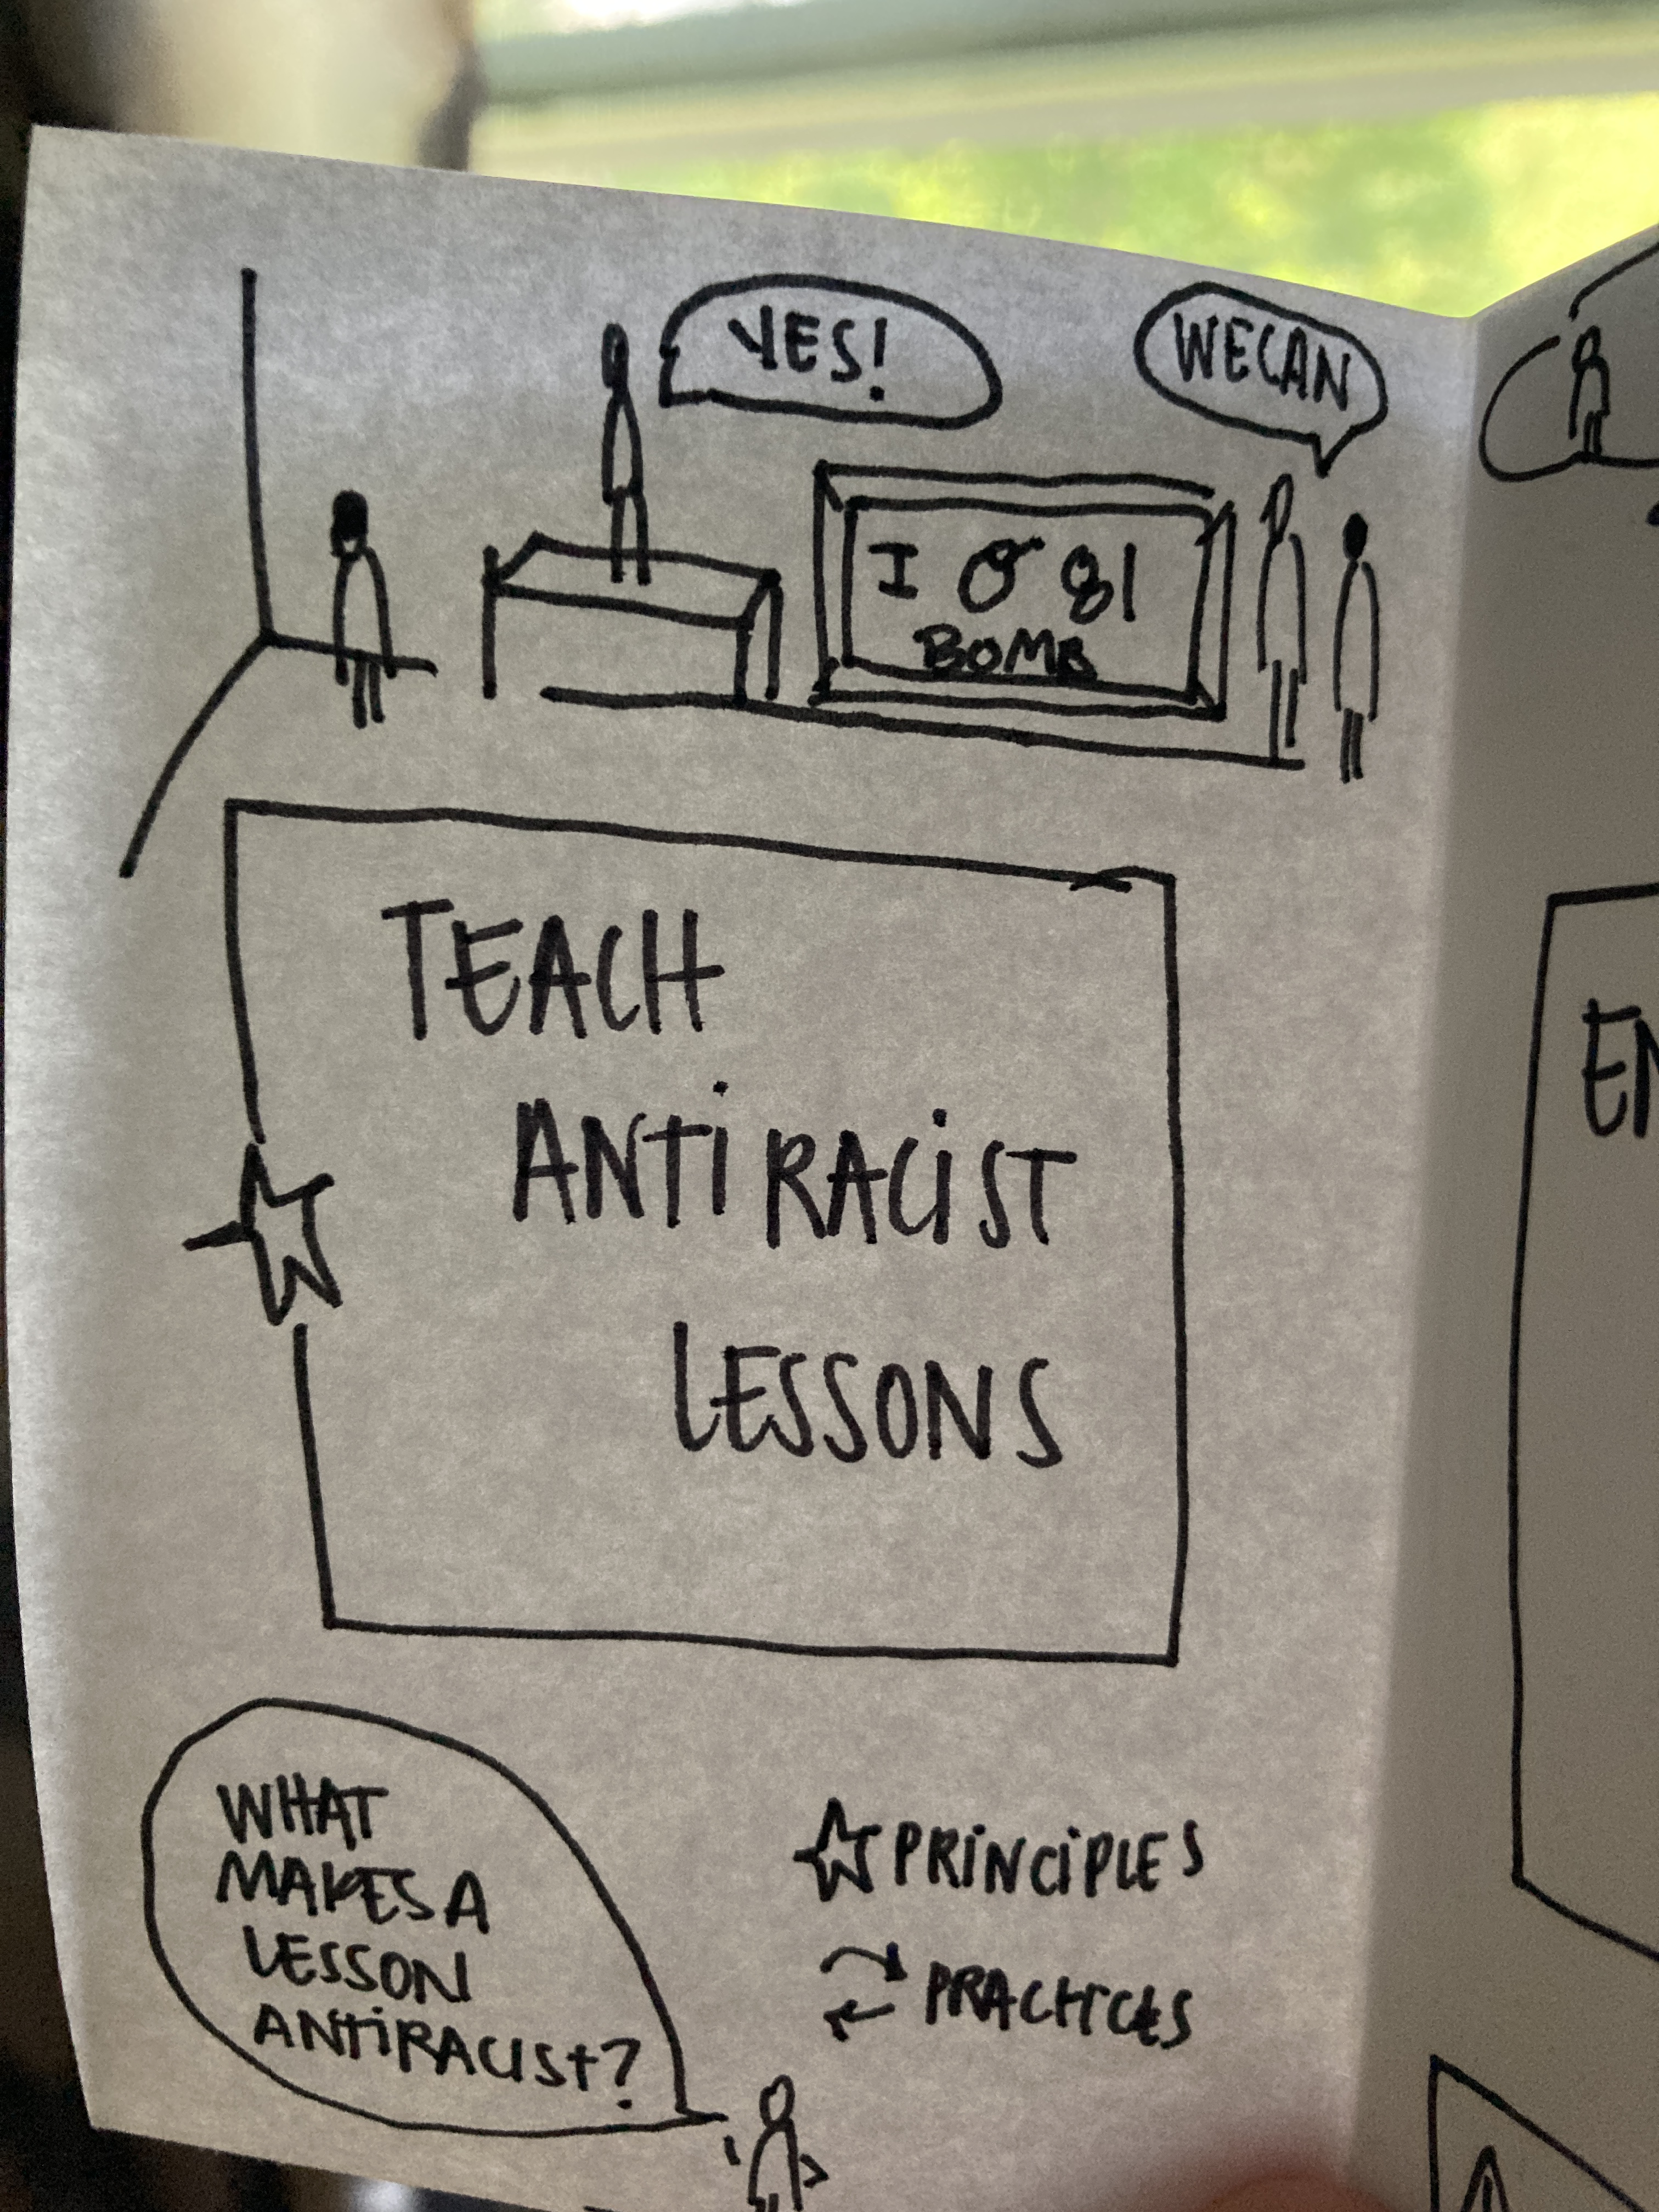 YES!
WE CAN
BOMB
TEACH
ANTIRACIST
LESSONS
EN
WHAT
MAKES A
LESSON
ANTIRACIST?
PRINCIPLES
PRACTICES